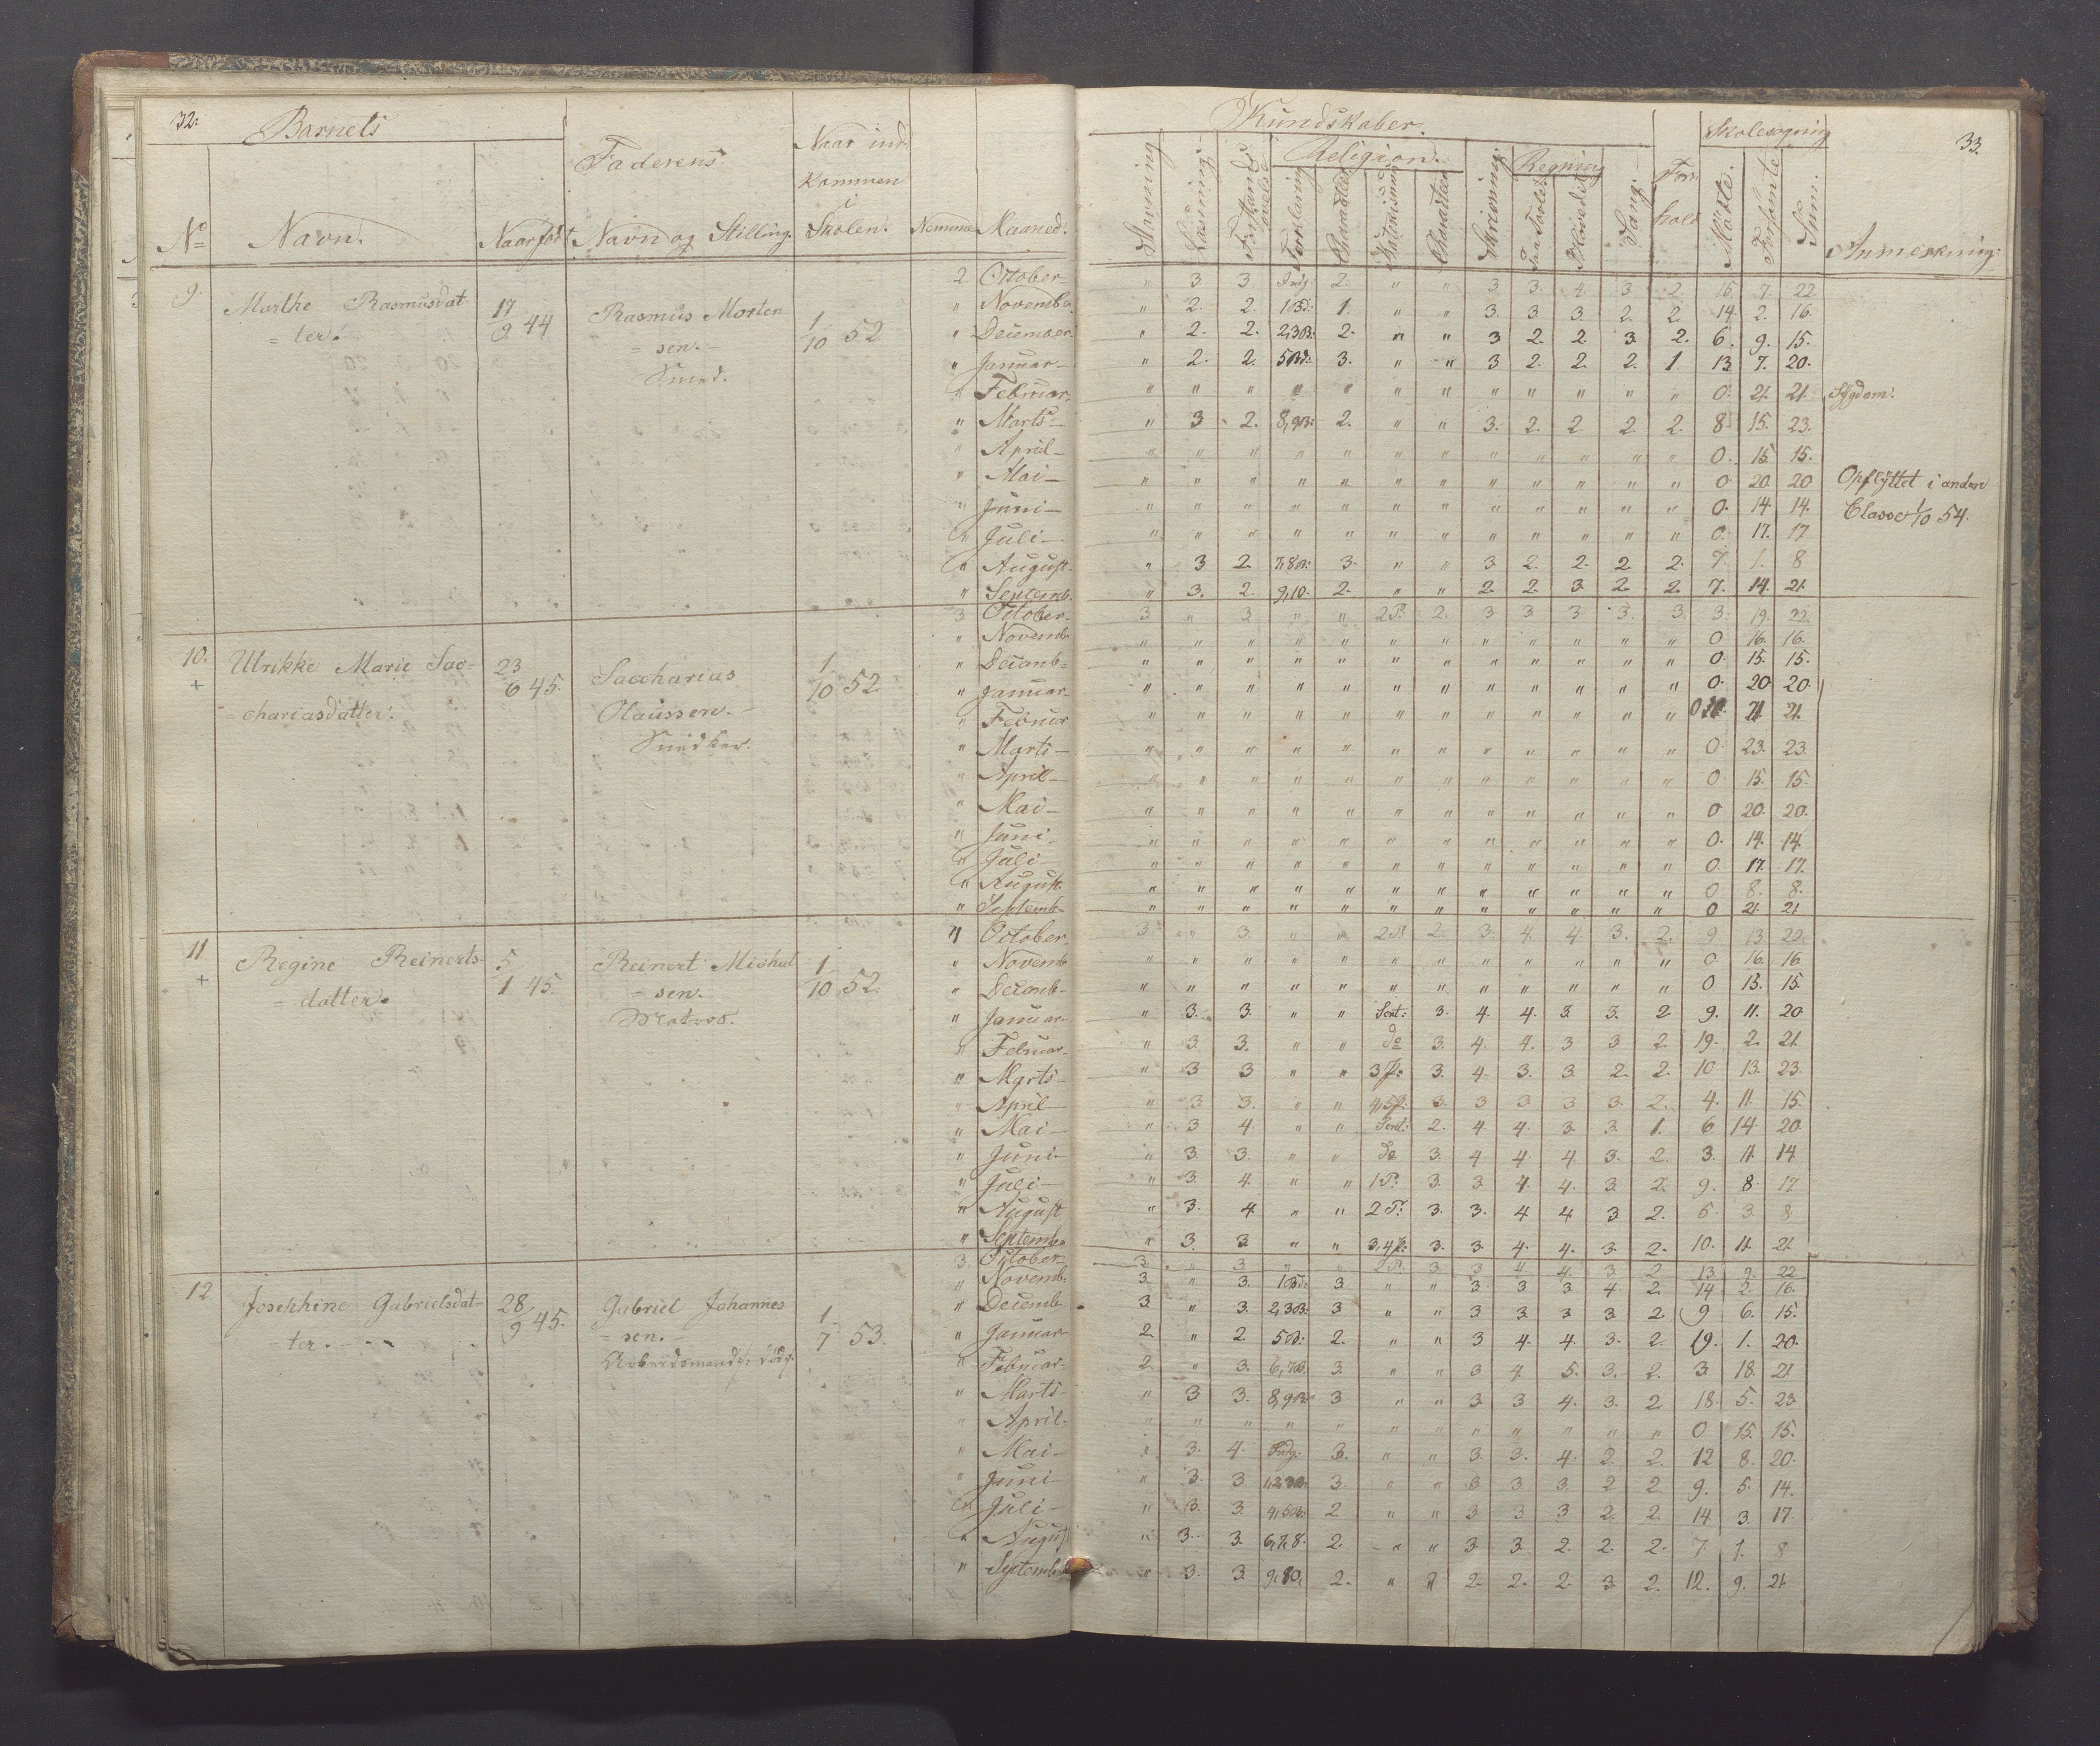 32.
Barnets
Faderens
Naar ind
kommen
i
No Navn. Naar født Navn og Stilling. Skolen. Nummer Maaned.
9. Marthe Rasmusdat 17/9 44 Rasmus Morten 1/10 52 2 October
= ter. = sen.
Smed.
" November
" December
" Januar
" Februar
" Marts
" April
" Mai
" Juni
" Juli
" August
" Septemb.
10. Ulrikke Marie Sac= 23/6 45. Saccharius 1/10 52 3 October
+ = chariasdatter. Olaussen.
Snedker.
" Novemb
" Decemb
" Januar
" Februar
" Marts
" April
" Mai
" Juni
" Juli
" August
" Septemb
11 Regine Reinerts 5/1 45. Reinert Michael 1/10 52. 4 October
+ = datter. = sen.
Matros.
" Novemb
" Decemb
" Januar
" Februar
" Marts
" April
" Mai
" Juni
" Juli
" August
" Septemb
12 Josephine Gabrielsdat 28/9 45. Gabriel Johannes 1/7 53. 3 October
= ter. = sen.
" Novemb.
" Decemb
" Januar
" Februar
" Marts
" April
" Mai
" Juni
" Juli
" August
" Septemb
33.
Kundskaber.
Skolesøgning
Religion.
Regning
For-
hold
Stavning Læsning Forklaring Charakter Charakter Skrivning Paa Tavle Hovedet Sang. Mødte. Forsømte Sum. Anmerkning:
" 3 3 Indg. 2. " " 3 3. 4. 3 2 15. 7. 22
" 2. 2. 1 Bd: 1. " " 3. 3. 3. 2. 2. 14. 2. 16.
" 2. 2. 2,3 B: 2. " " 3 2. 2. 3. 2. 6. 9. 15.
" 2. 2. 5 Bd: 3. " " 3 2. 2. 2. 1. 13. 7. 20.
" " " " " " " " " " " " 0. 21. 21. Sygdom.
" 3 2. 8,9 B: 2. " " 3. 2. 2 2. 2. 8 15. 23.
" " " " " " " " " " " " 0. 15. 15.
" " " " " " " " " " " " 0 20. 20 Opflyttet i anden
" " " " " " " " " " " " 0. 14. 14. Classe 1/10 54.
" " " " " " " " " " " " 0. 17. 17
" 3 2. 7,8 B: 3. " " 3 2. 2. 2. 2. 7. 1. 8
" 3. 2. 9,10. 2. " " 2. 2. 3. 2. 2. 7. 14. 21.
3 " 3 " " 2 P. 2. 3 3 3 3. 3. 3. 19. 22.
" " " " " " " " " " " " 0 16. 16.
" " " " " " " " " " " " 0. 15. 15.
" " " " " " " " " " " " 0. 20 20
" " " " " " " " " " " " 0 21 21.
" " " " " " " " " " " " 0. 23. 23.
" " " " " " " " " " " " 0. 15. 15.
" " " " " " " " " " " " 0 20. 20.
" " " " " " " " " " " " 0. 14. 14.
" " " " " " " " " " " " 0. 17. 17.
" " " " " " " " " " " " 0 8. 8.
" " " " " " " " " " " " 0 21. 21
3 " 3. " " 2 P. 2. 3. 4. 4. 3. 2. 9 13. 22.
" " " " " " " " " " " " 0 16. 16.
" " " " " " " " " " " " 0 15. 15.
" 3. 3. " " 3. 4. 4. 3. 3. 2 9. 11. 20
" 3. 3. " " do 3. 4. 4. 3 3 2. 19. 2. 21.
" 3 3 " " 3 P: 3. 4. 3. 3. 2. 2. 10 13. 23.
" 3 3. " " 4,5 P. 3. 3 3 3 3. 2. 4. 11. 15.
" 3 4. " " 2. 4 4. 3. 3. 1. 6 14. 20.
" 3. 3. " " do 3. 4 4. 4. 3. 2. 3. 11. 14
" 3. 4. " " 1 P. 3. 3 4. 4. 3 2. 9. 8. 17
" 3. 4 " " 2 P: 3. 3. 4 4 3 2. 5. 3. 8
" 3. 3. " " 3,4 P: 3. 3. 4. 4. 3. 2. 10. 11. 21.
3 " 3 " " 2 P. 3 3 4 4. 3. 2. 13. 9. 22
3. " 3. 1 Bd: 3 " " 3. 3 3 4. 2. 14 2. 16.
3. " 3. 2,3 B. 3 " " 3 3 3 3 2. 9 6. 15.
2. " 2. 5 B. 2. " " 3 4. 4. 3. 2. 19. 1. 20.
2. " 3. 6,7 B. 3. " " 3 4. 5. 3. 2. 3 18. 21
" 3 3. 8,9 B. 3 " " 3. 3 4. 3. 2. 18. 5. 23
" " " " " " " " " " " " 0 15. 15.
" 3. 4. Indg. 3. " " 3. 3. 4. 2. 2. 12 8. 20.
" 3. 3 1,2,3 B. 3. " " 3 3 3. 2 2 9. 5. 14.
" 3. 3. 4,5 B: 2 " " 3 3 3 2. 2. 14 3. 17.
" 3. 3. 6,7,8. 2. " " 3. 3. 2. 2. 2. 7 1. 8
" 3. 3. 9,10. 2. " " 2. 2. 2. 3. 2. 12. 9. 21.